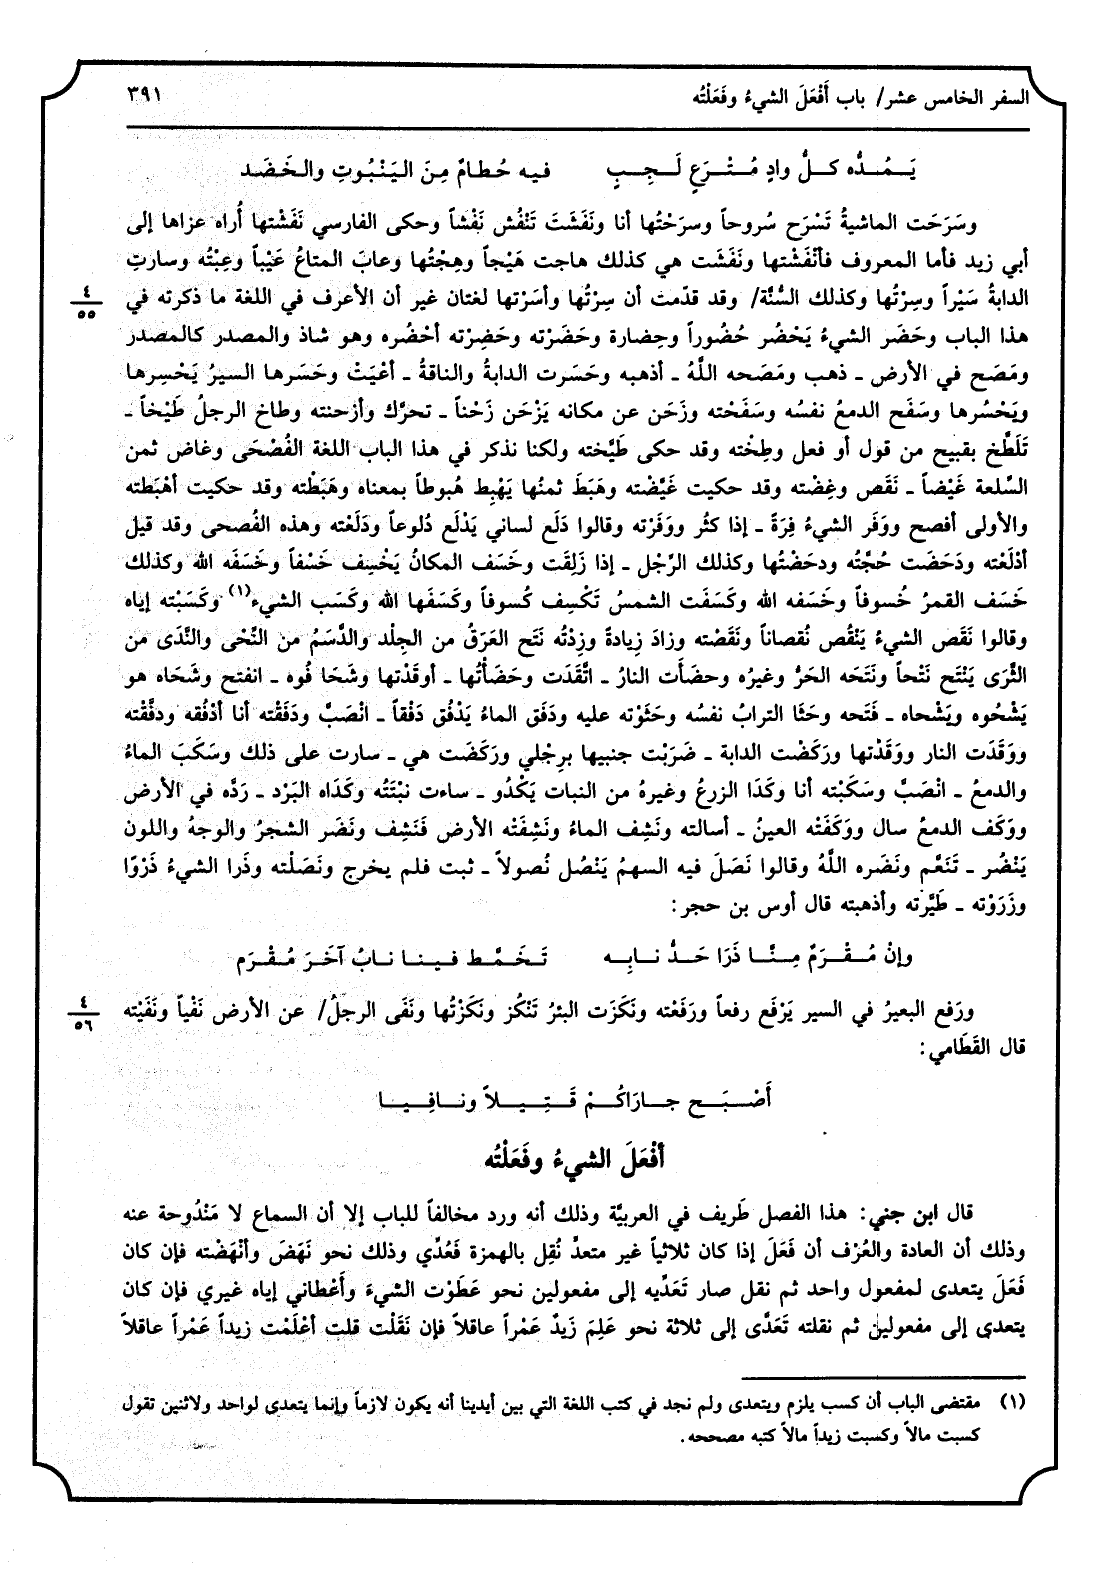 السفر الخامس عشر/ باب أَفْعَلَ الشيءُ وفَعَلْتُه ٣٩١
يَـمُـدُّه كـلُّ وادٍ مُـتْـرَعٍ لَـجِـبٍ فيه حُطامٌ مِنَ اليَنْبُوتِ والخَضَد
وسَرَحَت الماشيةُ تَسْرَح سُروحاً وسرَحْتُها أنا ونَفَشَتَ تَنْفُش نَفْشاً وحكى الفارسي نَفَشْتها أُراه عزاها إلى
أبي زيد فأما المعروف فأَنْفَشْتها ونَفَشَت هي كذلك هاجت هَيْجاً وهِجْتُها وعابَ المتاعُ عَيْباً وعِبْتُه وسارتِ
الدابةُ سَيْراً وسِرْتُها وكذلك السُّنَّة/ وقد قدّمت أن سِرْتُها وأسَرْتها لغتان غير أن الأعرف في اللغة ما ذكرته في
٤
٥٥
هذا الباب وحَضَر الشيءُ يَحْضُر حُضُوراً وحِضارة وحَضَرْته وحَضِرْته أحْضُره وهو شاذ والمصدر كالمصدر
ومَصَح في الأرض ـ ذهب ومَصَحه اللَّهُ ـ أذهبه وحَسَرت الدابةُ والناقةُ ـ أعْيَتْ وحَسَرها السيرُ يَحْسِرها
ويَحْسُرها وسَفَح الدمعُ نفسُه وسَفَحْته وزَحَن عن مكانه يَزْحَن زَحْناً ـ تحرَّك وأزحنته وطاخ الرجلُ طَيْخاً ـ
تَلَطَّخ بقبيح من قول أو فعل وطِخْته وقد حكى طَيَّخته ولكنا نذكر في هذا الباب اللغة الفُصْحَى وغاض ثمن
السِّلعة غَيْضاً ـ نَقَص وغِضْته وقد حكيت غَيَّضْته وهَبَطَ ثمنُها يَهْبِط هُبوطاً بمعناه وهَبَطْته وقد حكيت أهْبَطته
والأولى أفصح ووَفَر الشيءُ فِرَةً ـ إذا كثُر ووَفَرْته وقالوا دَلَع لساني يَدْلَع دُلوعاً ودَلَعْته وهذه الفُصحى وقد قيل
أدْلَعْته ودَحَضَت حُجَّتُه ودحَضْتُها وكذلك الرِّجْل ـ إذا زَلِقَت وخَسَف المكانُ يَخْسِف خَسْفاً وخَسَفَه الله وكذلك
خَسَف القمرُ خُسوفاً وخَسَفه الله وكَسَفَت الشمسُ تَكْسِف كُسوفاً وكَسَفَها الله وكَسَب الشيء(١) وكَسَبْته إياه
وقالوا نَقَص الشيءُ يَنْقُص نُقصاناً ونَقَصْته وزادَ زِيادةً وزِدْتُه نَتَح العَرَقُ من الجِلْد والدَّسَمُ من النِّحْى والنَّدَى من
الثَّرَى يَنْتَح نَتْحاً ونَتَحه الحَرُّ وغيرُه وحضَأَت النارُ ـ اتَّقَدَت وحَضَأْتُها ـ أوقَدْتها وشَحَا فُوه ـ انفتح وشَحَاه هو
يَشْحُوه ويَشْحاه ـ فَتَحه وحَثَا الترابُ نفسُه وحَثَوْته عليه ودَفَق الماءُ يَدْفُق دَفْقاً ـ انْصَبَّ ودَفَقْته أنا أدْفُقه ودفَّقْته
ووَقَدَت النار ووَقَدْتها وركَضْت الدابة ـ ضَرَبْت جنبيها برِجْلي وركَضَت هي ـ سارت على ذلك وسَكَبَ الماءُ
والدمعُ ـ انْصَبَّ وسَكَبْته أنا وكَدَا الزرعُ وغيرهُ من النبات يَكْدُو ـ ساءت نبْتَتُه وكَدَاه البَرْد ـ رَدَّه في الأرض
ووَكَف الدمعُ سال ووَكَفَتْه العينُ ـ أسالته ونَشِف الماءُ ونَشِفَتْه الأرض فَنَشِف ونَضَر الشجرُ والوجهُ واللون
يَنْضُر ـ تَنَعَّم ونَضَره اللَّهُ وقالوا نَصَلَ فيه السهمُ يَنْصُل نُصولاً ـ ثبت فلم يخرج ونَصَلْته وذَرا الشيءُ ذَرْوًا
وزَرَوْته ـ طَيَّرته وأذهبته قال أوس بن حجر:
وإنْ مُـقْـرَمٌ مِـنَّـا ذَرَا حَـدُّ نـابِـه تَـخَـمَّـط فـيـنـا نـابُ آخَـرَ مُـقْـرَم
ورَفع البعيرُ في السير يَرْفَع رفعاً ورَفَعْته ونَكَزَت البئرُ تَنْكُز ونَكَزْتُها ونَفَى الرجلُ/ عن الأرض نَفْياً ونَفَيْته
٤
٥٦
قال القَطَامي:
أَصْـبَـح جـارَاكُـمْ قَـتِـيـلاً ونـافِـيـا
أفْعَلَ الشيءُ وفَعَلْتُه
قال ابن جني: هذا الفصل طَريف في العربيَّة وذلك أنه ورد مخالفاً للباب إلا أن السماع لا مَنْدُوحة عنه
وذلك أن العادة والعُرْف أن فَعَلَ إذا كان ثلاثياً غير متعدٍّ نُقِل بالهمزة فَعُدِّي وذلك نحو نَهَضَ وأنْهَضْته فإن كان
فَعَلَ يتعدى لمفعول واحد ثم نقل صار تَعَدِّيه إلى مفعولين نحو عَطَوْت الشيءَ وأَعْطاني إياه غيري فإن كان
يتعدى إلى مفعولين ثم نقلته تَعَدَّى إلى ثلاثة نحو عَلِمَ زَيدٌ عَمْراً عاقلاً فإن نَقَلْت قلت أعْلَمْت زيداً عَمْراً عاقلاً
(١) مقتضى الباب أن كسب يلزم ويتعدى ولم نجد في كتب اللغة التي بين أيدينا أنه يكون لازماً وإنما يتعدى لواحد ولاثنين تقول
كسبت مالاً وكسبت زيداً مالاً كتبه مصححه.